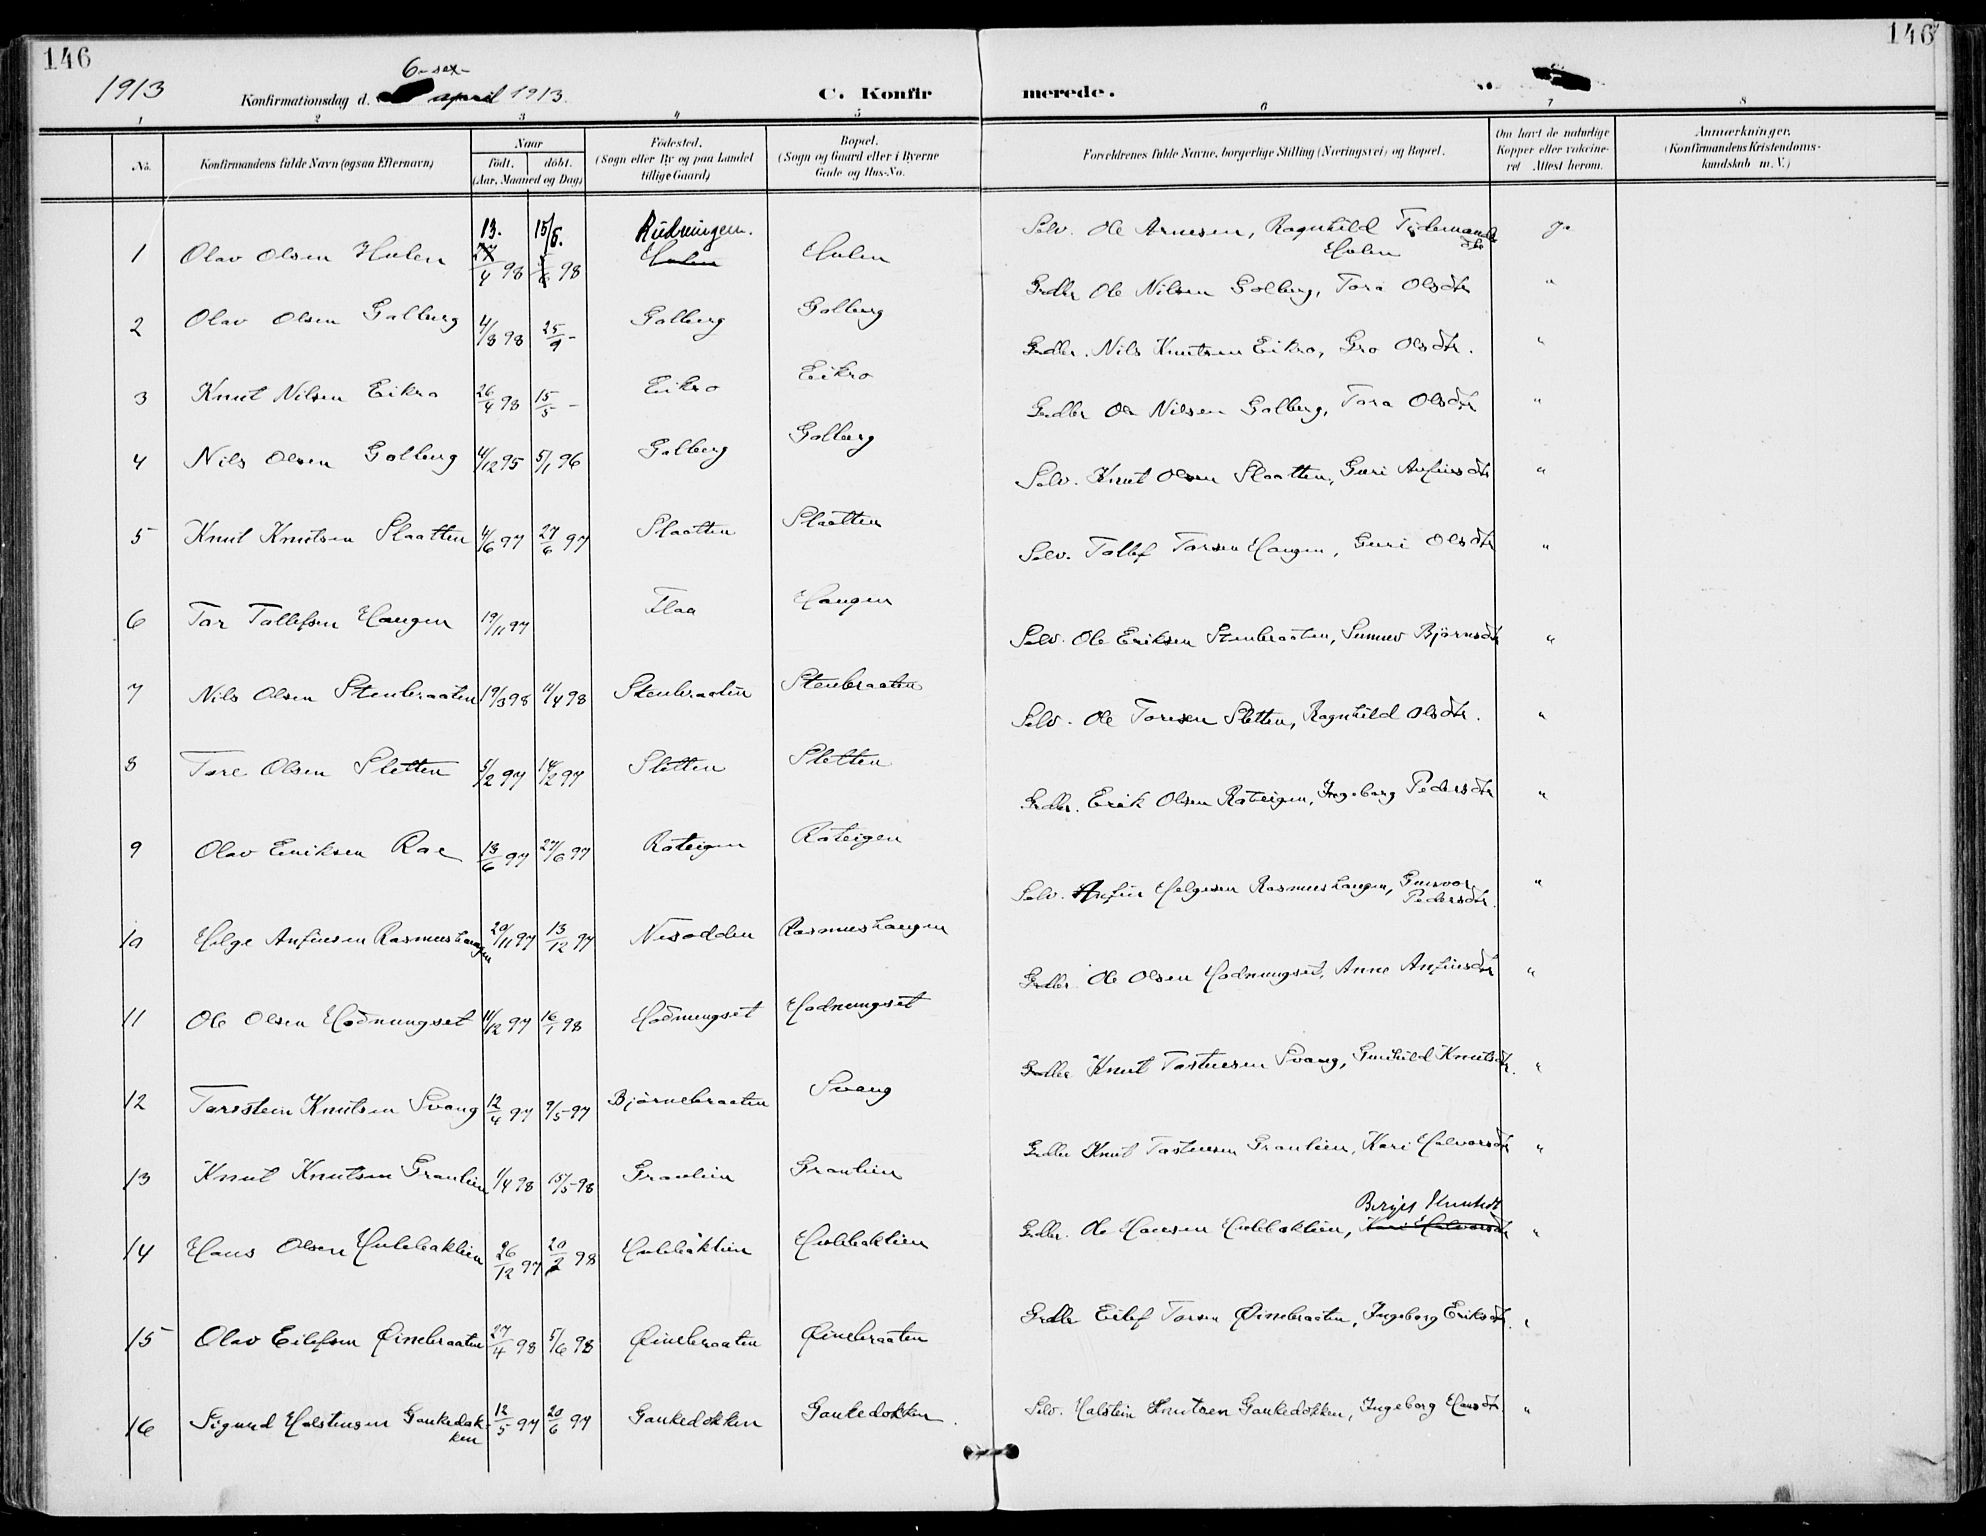 146
146
1913
6-sex-
Konfirmationsdag d. april 1913.
C. Konfir
merede.
1 2 3 4 5 6 7 8
No.
Konfirmandens fulde Navn (ogsaa Efternavn)
Naar
født. døbt.
(Aar, Maaned og Dag)
Fødested.
(Sogn eller By og paa Landet
tillige Gaard)
Bopæl.
(Sogn og Gaard eller i Byerne
Gade og Hus-No.
Forældrenes fulde Navne, borgerlige Stilling (Næringsvei) og Bopæl.
Om havt de naturlige
Kopper eller vakcine-
ret Attest herom.
Anmærkninger.
(Konfirmandens Kristendoms-
kundskab m. V.)
13. 15/5. Rudningen.
1 Olav Olsen Hulen 27/4 98 98 Hulen Hulen Selv. Ole Arnesen, Ragnhild Tidemands
dtr
Hulen ja
2 Olav Olsen Golberg 4/3 98 25/9 - Golberg Golberg Grdbr. Ole Nilsen Golberg, Tora Olsdtr "
3 Knut Nilsen Eikro 26/4 98 15/5 - Eikro Eikro Grdbr. Nils Knutsen Eikro, Gro Olsdtr. "
4 Nils Olsen Golberg 4/12 95 5/1 96 Golberg Golberg Grdbr Ole Nilsen Golberg, Tora Olsdtr "
5 Knut Knutsen Slaatten 4/6 97 27/6 97 Slaatten Slaatten Selv. Knut Olsen Slaatten, Guri Anfinsdtr "
6 Tor Tollefsen Haugen 19/11 97 Flaa Haugen Selv. Tollef Torsen Haugen, Guri Olsdtr "
7 Nils Olsen Stenbraaten 19/3 98 11/4 98 Stenbraaten Stenbraaten Selv. Ole Eriksen Stenbraaten, Sunnev Bjørnsdtr "
8 Tore Olsen Sletten 5/2 97 14/2 97 Sletten Sletten Selv. Ole Toresen Sletten, Ragnhild Olsdtr. "
9 Olav Eriksen Roe 13/6 97 27/6 97 Roteigen Roteigen Grdbr. Erik Olsen Roteigen, Ingeborg Pedersdtr "
10 Helge Anfinsen Rasmushaugen 20/11 97 13/12 97 Nesodden Rasmushaugen Selv. Anfin Helgesen Rasmushaugen, Gunvor
Pedersdtr. "
11 Ole Olsen Hodnungset 11/12 97 16/1 98 Hodnungset Hodnungset Grdbr. Ole Olsen Hodnungset, Anne Anfinsdtr "
12 Torstein Knutsen Svang 12/4 97 9/5-97 Bjørnebraaten Svang Grdbr Knut Tostensen Svang, Gunhild Knutsdtr. "
13 Knut Knutsen Granlien 1/4 98 15/5-98 Granlien Granlien Grdbr Knut Tostensen Granlien, Kari Halvorsdtr "
Birgit Knutsdt
14 Hans Olsen Hulebaklien 26/12 97 20/2 98 Hulebaklien Hulebaklien Grdbr. Ole Hansen Hulebaklien, Kari Halvorsdtr "
15 Olav Eilefsen Øinebraaten 27/4 98 5/6 98 Øinebraaten Øinebraaten Grdbr Eilef Torsen Øinebraaten, Ingeborg Eriksdtr. "
16 Sigurd Holstensen Gaukedok-
ken 12/5 97 20/6 97 Gaukedokken Gaukedokken. Selv. Holstein Knutsen Gaukedokken, Ingeborg Hansdtr. "